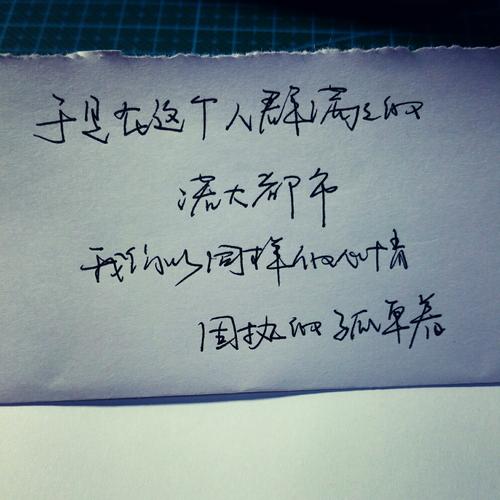 于是在这个人群满的
诺大都市
我们以同样的心情
固执的孤单着